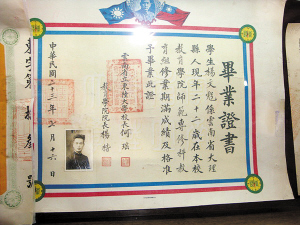 畢業證書
學生楊文係雲南省大理
縣人現年二十二歲在本校
教育學院師範專修科教
育組修業期滿成績及格准
予畢業此證
雲南省立東陸大學校長何瑤
教育學院院長楊
中華民國二十三年月十六日
字第號